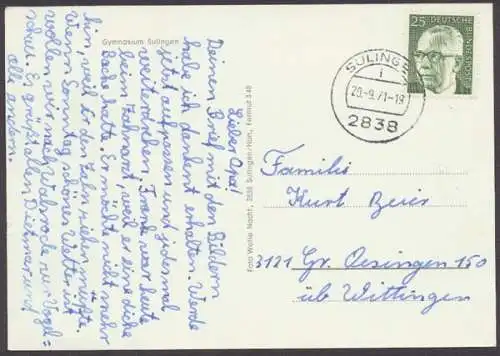 Gymnasium Sulingen
Lieber Opa!
Deinen Brief mit den Bildern
habe ich dankend erhalten. Werde
jetzt aufpassen und jedesmal
weiterdrehen. Frank war heute
beim Zahnarzt, weil er eine dicke
Backe hatte. Er möchte nicht mehr
hin, weil Er den Zahn ziehen müßte.
Wenn Sonntag schönes Wetter ist
wollen wir nach Walsrode zum Vogel=
park. Es grüßt allen Diekmar und
alle andern.
Foto Wolfie Nacht, 2838 Sulingen/Hann., Fernruf 3 48
25
DEUTSCHE
BUNDESPOST
SULINGEN
1
20.-9.71-19
2838
Familie
Kurt Beier
3121 Gr. Oesingen 150
üb Wittingen